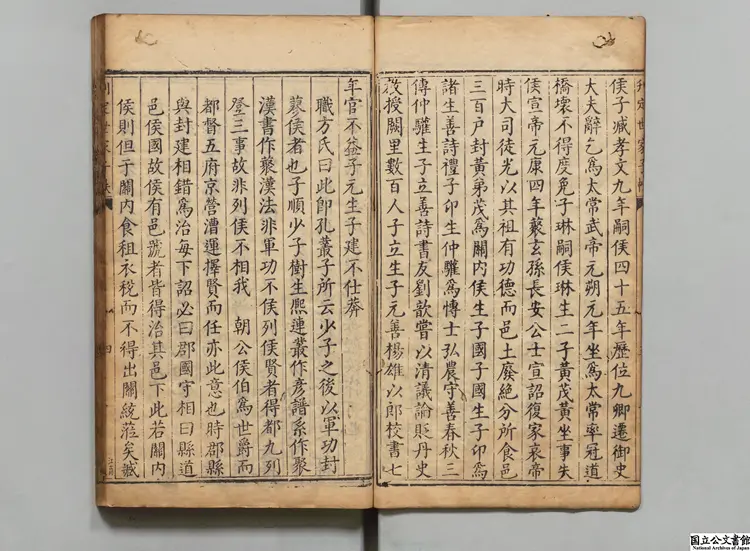 侯子臧孝文九年嗣侯四十五年歷位九卿遷御史
大夫辭乞為太常武帝元朔元年坐為太常衣冠道
橋壞不得度免子琳嗣侯琳生二子黃茂黃坐事失
侯宣帝元康四年蓼玄孫長安公士宣詔復家哀帝
時大司徒光以其祖有功德而邑土廢絕分所食邑
三百戶封黃弟茂為關內侯生子國子國生子卬為
諸生善詩禮子卬生仲驩為博士弘農守善春秋三
傳仲驩生子立善詩書友劉歆嘗以清議論貶丹史
授闕里數百人子立生子元善楊雄以郎校書七
年官不益子元生子建不仕莽
職方氏曰此即孔叢子所云少子之後以軍功封
蓼侯者也子順少子樹生熙蓮叢作彥譜系作聚
漢書作藂漢法非軍功不侯列侯賢者得都九列
登三事故非列侯不相我 朝公侯伯為世爵而
都督五府京營漕運擇賢而任亦此意也時郡縣
與封建相錯為治每下詔必曰郡國守相曰縣道
邑侯國故侯有邑號者皆得治其邑下此若關內
侯則但于關內食租衣稅而不得出關統蒞矣臧
四
国立公文書館
National Archives of Japan